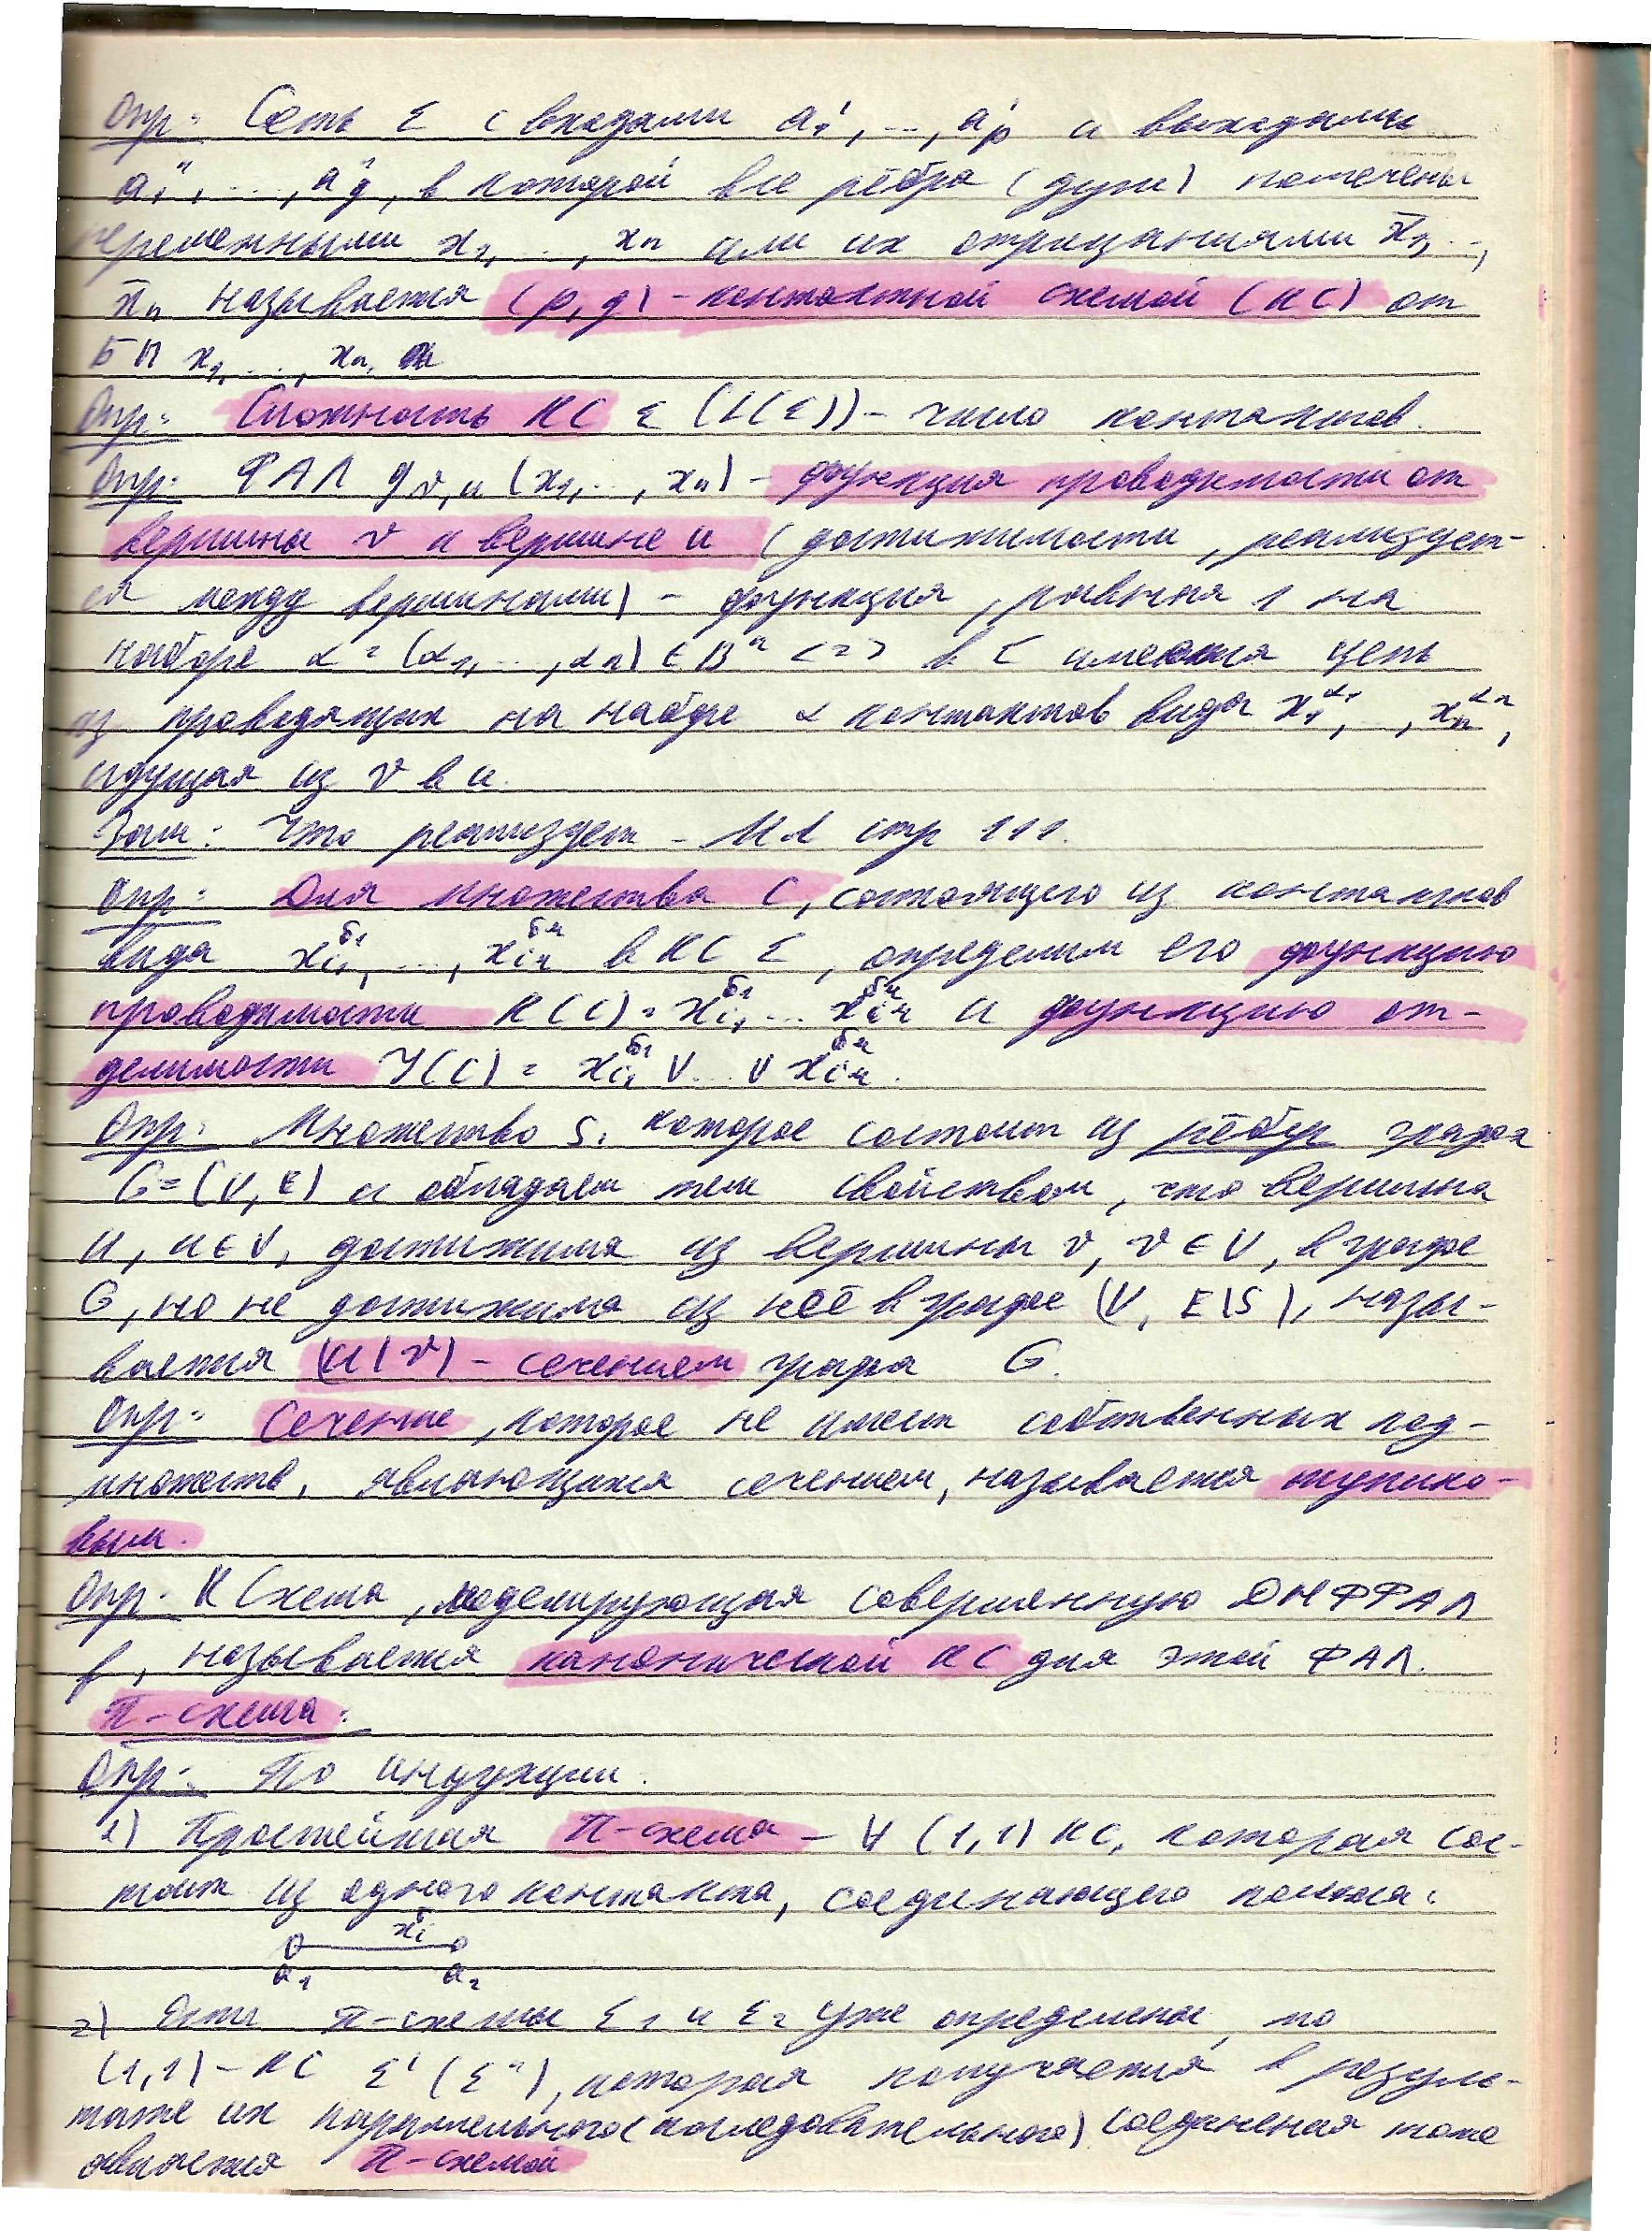 Опр: Сеть Σ с входами a'₁, ..., a'p и выходами
a''₁, ..., a''q, в которой все рёбра (дуги) помечены
переменными x₁, ..., xₙ или их отрицаниями x̄₁, ...,
x̄ₙ называется (p,q)-контактной схемой (КС) от
БП x₁, ..., xₙ.
Опр: Сложность КС Σ (L(Σ)) - число контактов.
Опр: ФАЛ g_v,u (x₁, ..., xₙ) - функция проводимости от
вершины v к вершине u (достижимости, реализует-
ся между вершинами) - функция, равная 1 на
наборе α = (α₁, ..., αₙ) ∈ Bⁿ <=> в Σ имеется цепь
из проводящих на наборе α контактов вида x₁^α₁, ..., xₙ^αₙ,
идущая из v в u.
Зам: Что реализует - МЛ стр 111.
Опр: Для множества C, состоящего из контактов
вида x_i₁^σ₁, ..., x_iᵣ^σᵣ в КС Σ, определим его функцию
проводимости K(C) = x_i₁^σ₁ ... x_iᵣ^σᵣ и функцию от-
делимости J(C) = x_i₁^σ₁ ∨ ... ∨ x_iᵣ^σᵣ.
Опр: Множество S, которое состоит из рёбер графа
G=(V, E) и обладает тем свойством, что вершина
u, u∈V, достижима из вершины v, v∈V, в графе
G, но не достижима из неё в графе (V, E\S), назы-
вается (u|v)-сечением графа G.
Опр: Сечение, которое не имеет собственных под-
множеств, являющихся сечением, называется тупико-
вым.
Опр. К Схема, моделирующая совершенную ДНФ ФАЛ
f, называется канонической КС для этой ФАЛ.
π-схема:
Опр: По индукции.
1) Простейшая π-схема - ∀ (1,1) КС, которая сос-
тоит из одного контакта, соединяющего полюса:
xᵢ
a₁ a₂
2) Если π-схемы Σ₁ и Σ₂ уже определены, то
(1,1)-КС Σ' (Σ''), которая получается в резуль-
тате их параллельного (последовательного) соединения тоже
является π-схемой